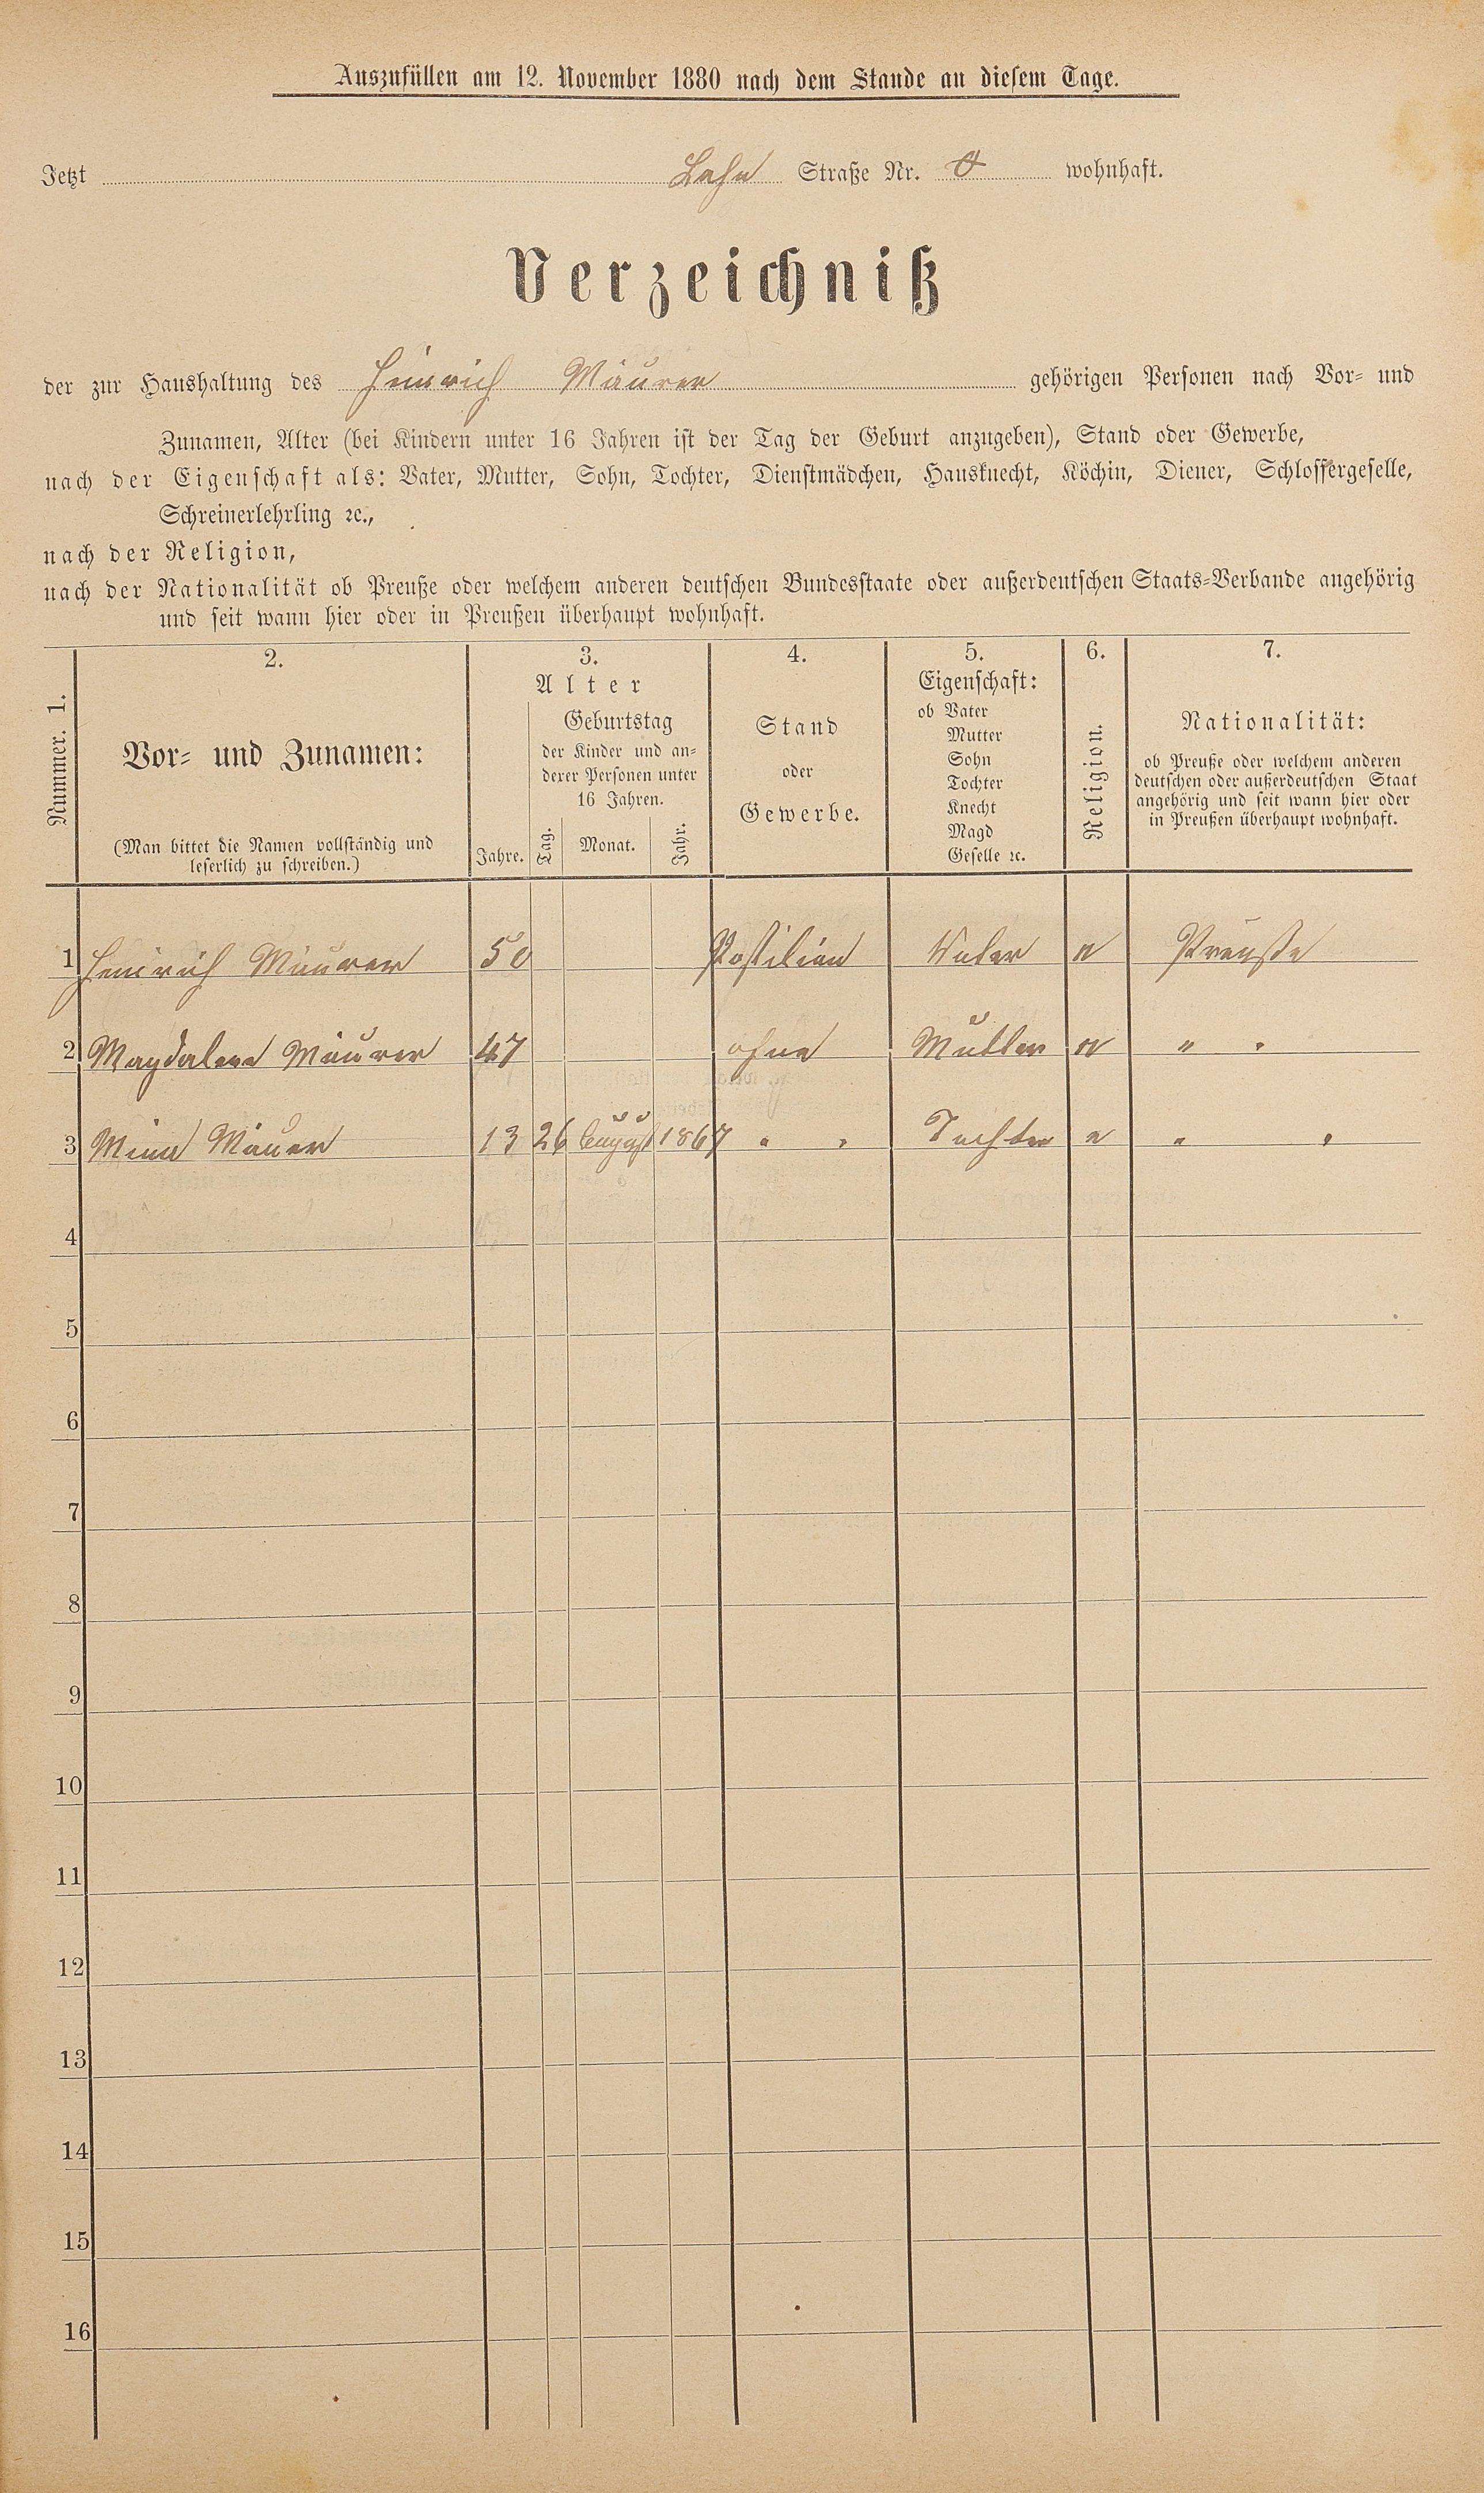 Auszufüllen am 12. November 1880 nach dem Stande an diesem Tage.
Jetzt Lahn Straße Nr. wohnhaft.
Verzeichniß
der zur Haushaltung des Heinrich Maurer gehörigen Personen nach Vor- und
Zunamen, Alter (bei Kindern unter 16 Jahren ist der Tag der Geburt anzugeben), Stand oder Gewerbe,
nach der Eigenschaft als: Vater, Mutter, Sohn, Tochter, Dienstmädchen, Hausknecht, Köchin, Diener, Schlossergeselle,
Schreinerlehrling ꝛc.,
nach der Religion,
nach der Nationalität ob Preuße oder welchem anderen deutschen Bundesstaate oder außerdeutschen Staats-Verbande angehörig
und seit wann hier oder in Preußen überhaupt wohnhaft.
Nummer. 1.
2.
Vor- und Zunamen:
(Man bittet die Namen vollständig und
leserlich zu schreiben.)
3.
Alter
Jahre.
Geburtstag
der Kinder und an-
derer Personen unter
16 Jahren.
Tag. Monat. Jahr.
4.
Stand
oder
Gewerbe.
5.
Eigenschaft:
ob Vater
Mutter
Sohn
Tochter
Knecht
Magd
Geselle ꝛc.
6.
Religion.
7.
Nationalität:
ob Preuße oder welchem anderen
deutschen oder außerdeutschen Staat
angehörig und seit wann hier oder
in Preußen überhaupt wohnhaft.
1 Heinrich Maurer 50 Postilion Vater e Preuße
2 Magdalena Maurer 47 ohne Mutter e " "
3 Mina Mauer 13 26 August 1867 " " Tochter e " "
4
5
6
7
8
9
10
11
12
13
14
15
16